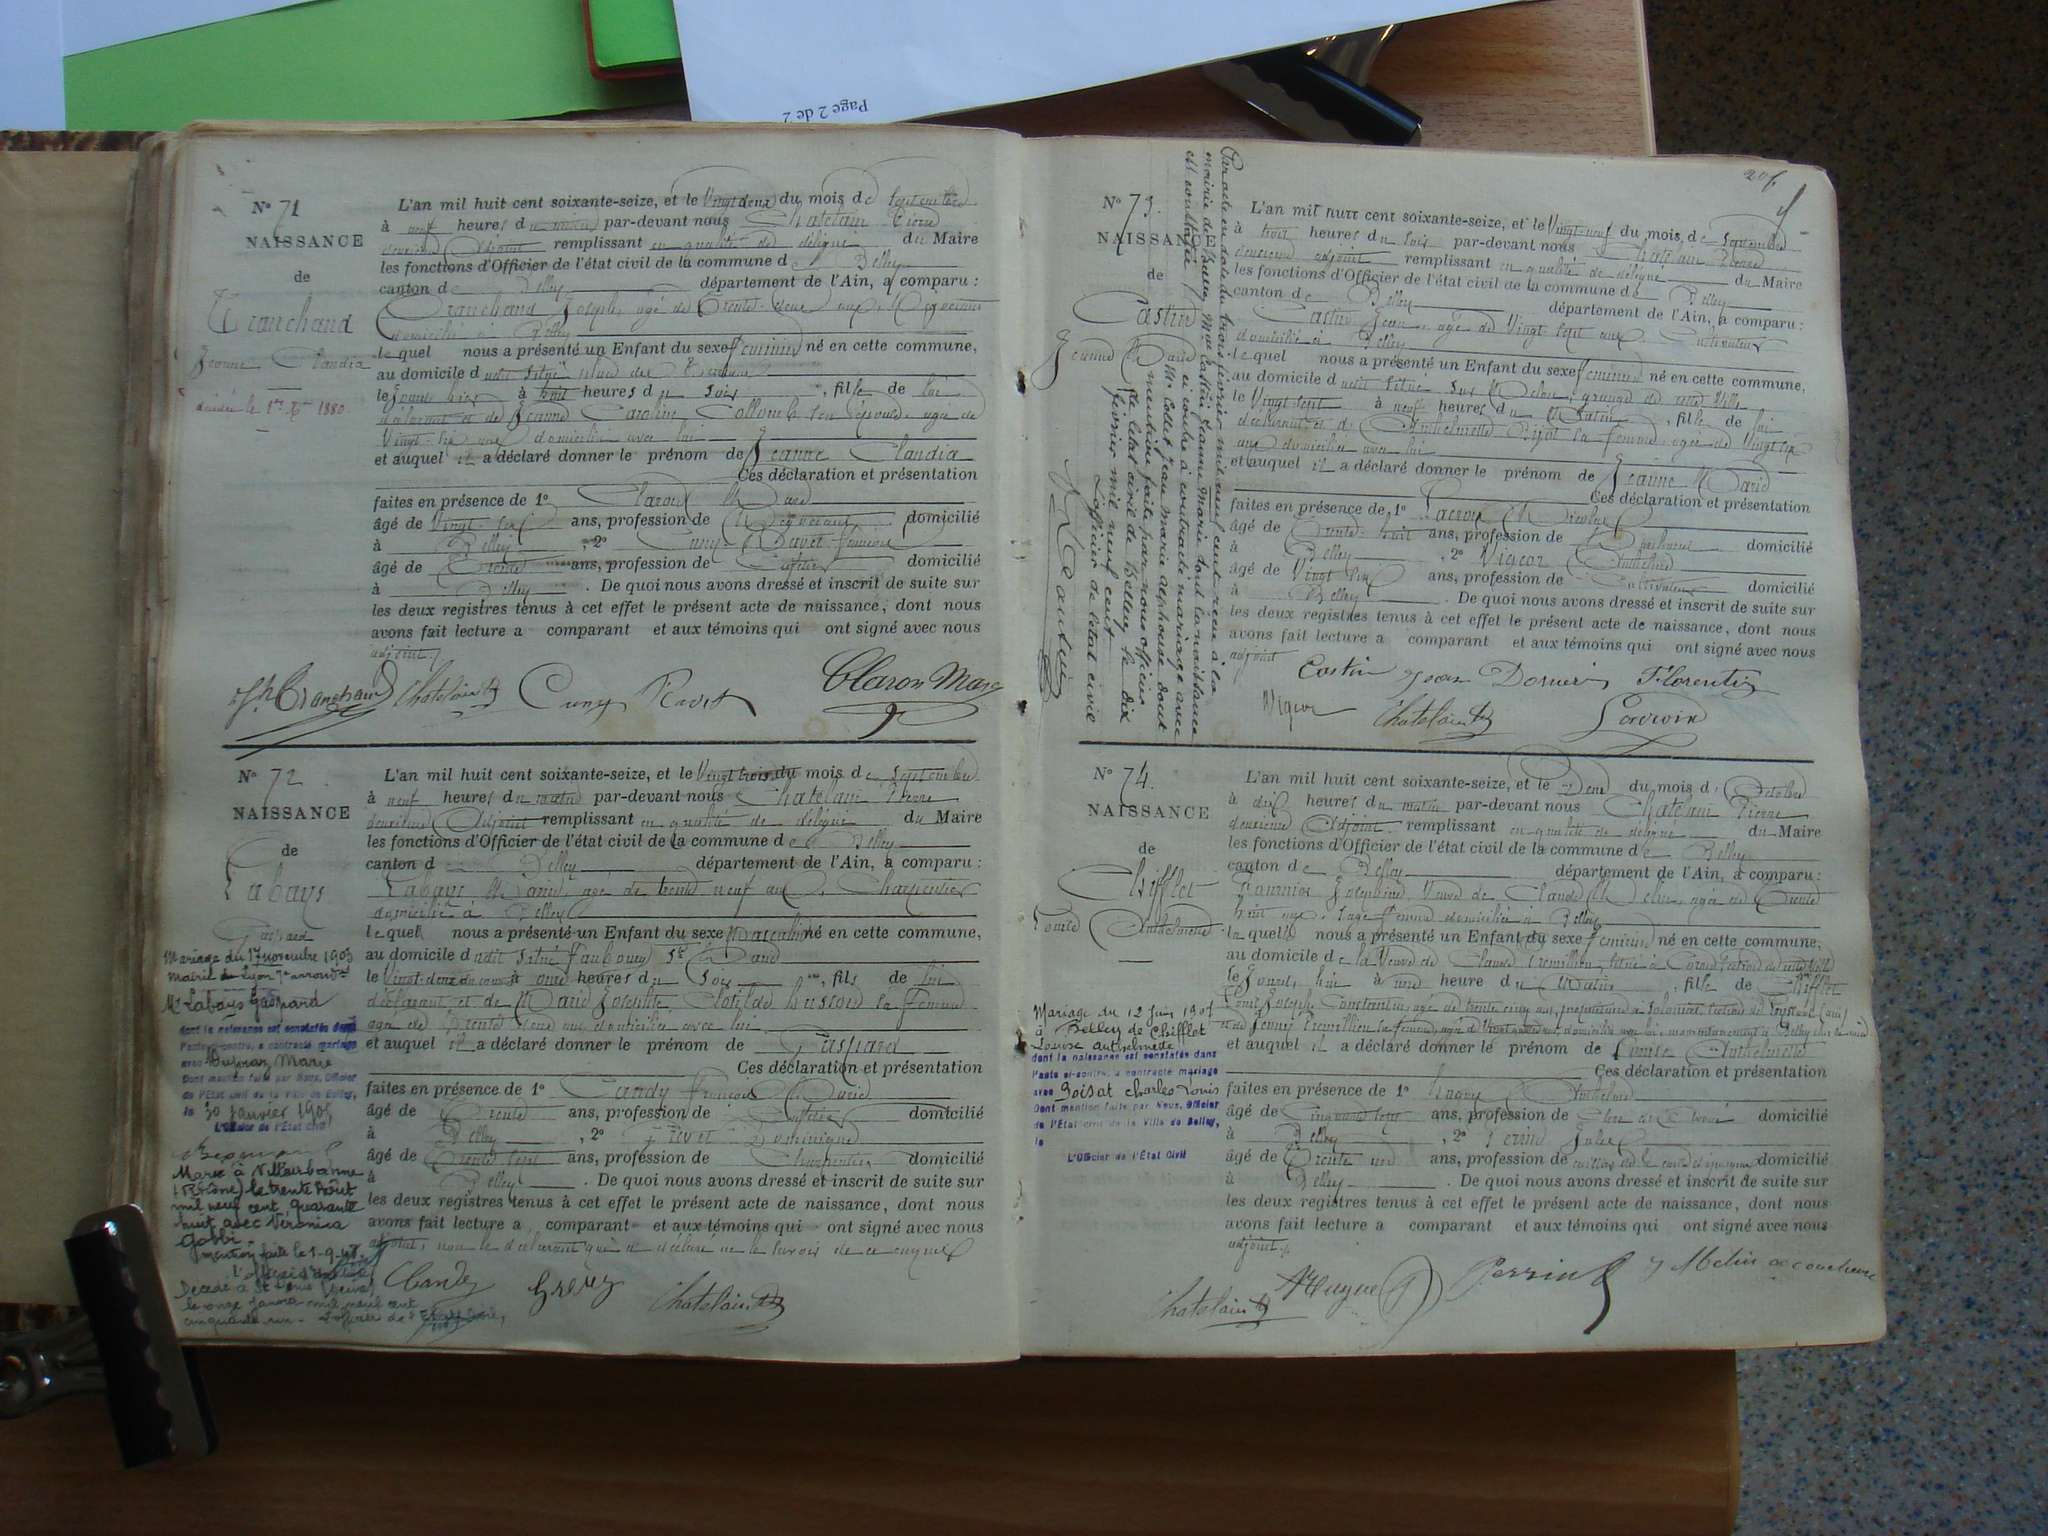 Page 2 de 2
N° 71
NAISSANCE
de
Tranchand
Jeanne Claudia
décédée le 1er 1880.
L'an mil huit cent soixante-seize, et le Vingt deux du mois de Septembre
à neuf heures du matin par-devant nous Chatelain Pierre
deuxième Adjoint remplissant en qualité de délégué du Maire
les fonctions d'Officier de l'état civil de la commune de Belley
canton de Belley département de l'Ain, a comparu :
Tranchand Joseph, agé de Trente-deux ans, Négociant
domicilié à Belley
lequel nous a présenté un Enfant du sexe féminin né en cette commune,
au domicile dudit
le jour d'hier à huit heures du soir, fille de lui
déclarant et de Jeanne Caroline Collomb son épouse agée de
Vingt-six ans domiciliée avec lui
et auquel il a déclaré donner le prénom de Jeanne Claudia
Ces déclaration et présentation
faites en présence de 1° Claron Marc
âgé de Vingt-six ans, profession de Négociant domicilié
à Belley, 2° Cuny-Ravet François
âgé de Trente ans, profession de domicilié
à Belley. De quoi nous avons dressé et inscrit de suite sur
les deux registres tenus à cet effet le présent acte de naissance, dont nous
avons fait lecture a comparant et aux témoins qui ont signé avec nous
adjoint.
Jh Tranchand Chatelain Cuny Ravet Claron Marc
N° 72
NAISSANCE
de
Labays
Gaspard
Mariage du 17 novembre 1903
Mairie de Lyon 7e arrondt
Mr Labays Gaspard
dont la naissance est constatée dans
l'acte ci-contre, a contracté mariage
avec Marie
Dont mention faite par Nous, Officier
de l'État civil de la Ville de Belley,
le 30 janvier 1905
L'Officier de l'État Civil
Marié à Villeurbanne
(Rhône) le trente Août
mil neuf cent quarante
huit avec Véronica
Gobbi.
Mention faite le 1-9-48.
Décédé à St Denis (Seine)
le onze janvier mil neuf cent
cinquante un. L'officier de l'Etat civil,
L'an mil huit cent soixante-seize, et le Vingt trois du mois de Septembre
à neuf heures du matin par-devant nous Chatelain Pierre
deuxième Adjoint remplissant en qualité de délégué du Maire
les fonctions d'Officier de l'état civil de la commune de Belley
canton de Belley département de l'Ain, a comparu :
Labays Marie, agé de trente neuf ans, Charpentier
domicilié à Belley
lequel nous a présenté un Enfant du sexe Masculin né en cette commune,
au domicile dudit situé faubourg St
le Vingt-deux du courant à onze heures du soir, fils de lui
déclarant et de Marie Josephte Clotilde Husson sa femme
agée de trente ans domiciliée avec lui
et auquel il a déclaré donner le prénom de Gaspard
Ces déclaration et présentation
faites en présence de 1° François Marie
âgé de Trente ans, profession de domicilié
à Belley, 2° Dominique
âgé de Trente sept ans, profession de Charpentier domicilié
à Belley. De quoi nous avons dressé et inscrit de suite sur
les deux registres tenus à cet effet le présent acte de naissance, dont nous
avons fait lecture a comparant et aux témoins qui ont signé avec nous
adjoint, non le déclarant qui a déclaré ne le savoir de ce enquis
Chatelain
206
N° 73.
NAISSANCE
de
Castin
Jeanne Marie
Par acte en date du trois février mil neuf cent reçu à la
mairie de Mlle Castin Jeanne Marie dont la naissance
est constatée ci contre a contracté mariage avec
Mr. Collet Jean Marie Alphonse dont
mention faite par nous officier
de l'état civil de Belley le dix
février mil neuf cent
L'officier de l'état civil
L'an mil huit cent soixante-seize, et le Vingt-neuf du mois de Septembre
à huit heures du soir par-devant nous Chatelain Pierre
deuxième adjoint remplissant en qualité de délégué du Maire
les fonctions d'Officier de l'état civil de la commune de Belley
canton de Belley département de l'Ain, a comparu :
Castin Jean, agé de Vingt-sept ans, Cultivateur
domicilié à Belley
lequel nous a présenté un Enfant du sexe féminin né en cette commune,
au domicile dudit situé sur de cette Ville
le Vingt sept à neuf heures du Matin, fille de lui
déclarant et de Anthelmette sa femme, agée de Vingt six
ans domiciliée avec lui
et auquel il a déclaré donner le prénom de Jeanne Marie
Ces déclaration et présentation
faites en présence de 1° Lacroix Nicolas
âgé de Trente-huit ans, profession de domicilié
à Belley, 2° Vigeor Anthelme
âgé de Vingt six ans, profession de Cultivateur domicilié
à Belley. De quoi nous avons dressé et inscrit de suite sur
les deux registres tenus à cet effet le présent acte de naissance, dont nous
avons fait lecture a comparant et aux témoins qui ont signé avec nous
adjoint
Castin Jean Dornier Florentin
Vigeor Chatelain Lacroix
N° 74.
NAISSANCE
de
Chifflet
Louise Anthelmette
Mariage du 12 Juin 1907
à Belley de Chifflet
Louise Anthelmette
dont la naissance est constatée dans
l'acte ci-contre, a contracté mariage
avec Boisat Charles Louis
Dont mention faite par Nous, Officier
de l'État civil de la Ville de Belley,
le
L'Officier de l'État Civil
L'an mil huit cent soixante-seize, et le Deux du mois d'Octobre
à dix heures du matin par-devant nous Chatelain Pierre
deuxième Adjoint remplissant en qualité de délégué du Maire
les fonctions d'Officier de l'état civil de la commune de Belley
canton de Belley département de l'Ain, a comparu :
Fournier Josephine Veuve de Claude Melin, agée de Trente
huit ans, Sage femme domiciliée à Belley
laquelle nous a présenté un Enfant du sexe féminin né en cette commune,
au domicile de la Veuve de Claude Tremillon situé à
le jour d'hier à une heure du Matin, fille de Chifflet
Louis Joseph Constantin, agé de trente cinq ans,
et de Jenny Tremillon sa femme,
et auquel il a déclaré donner le prénom de Louise Anthelmette
Ces déclaration et présentation
faites en présence de 1° Anthelme
âgé de Cinquante sept ans, profession de Clerc d'avoué domicilié
à Belley, 2° Perrin Jules
âgé de Trente un ans, profession de domicilié
à Belley. De quoi nous avons dressé et inscrit de suite sur
les deux registres tenus à cet effet le présent acte de naissance, dont nous
avons fait lecture a comparant et aux témoins qui ont signé avec nous
adjoint.
Chatelain Perrin J Melin accoucheuse